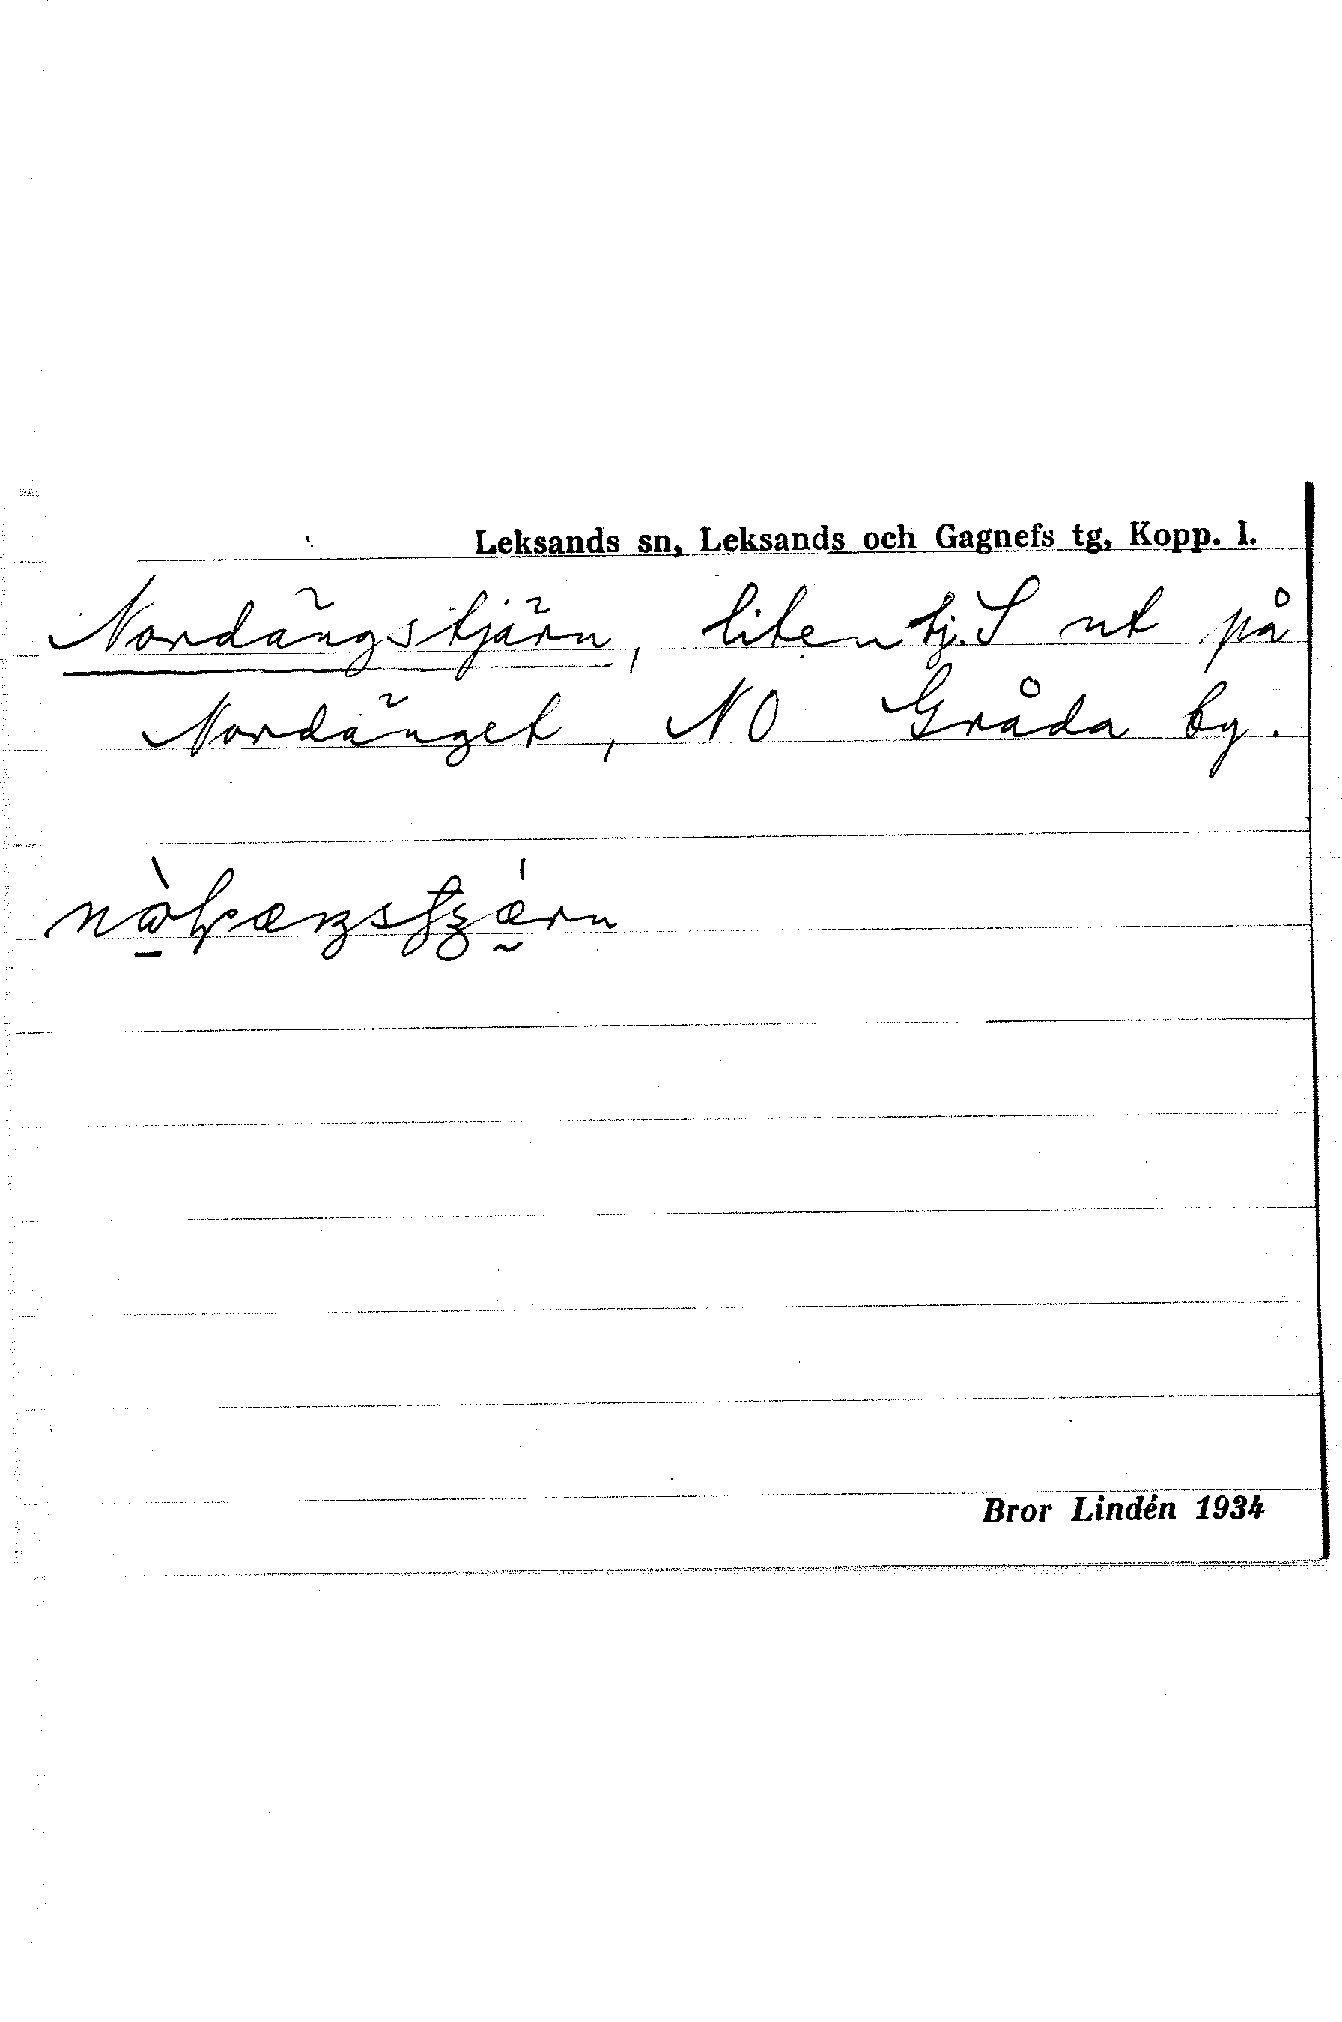 Leksands sn, Leksands och Gagnefs tg, Kopp. l.
Nordängstjärn, liten tj. S ut på
Nordänget, NO Gråda by.
Bror Lindén 1934